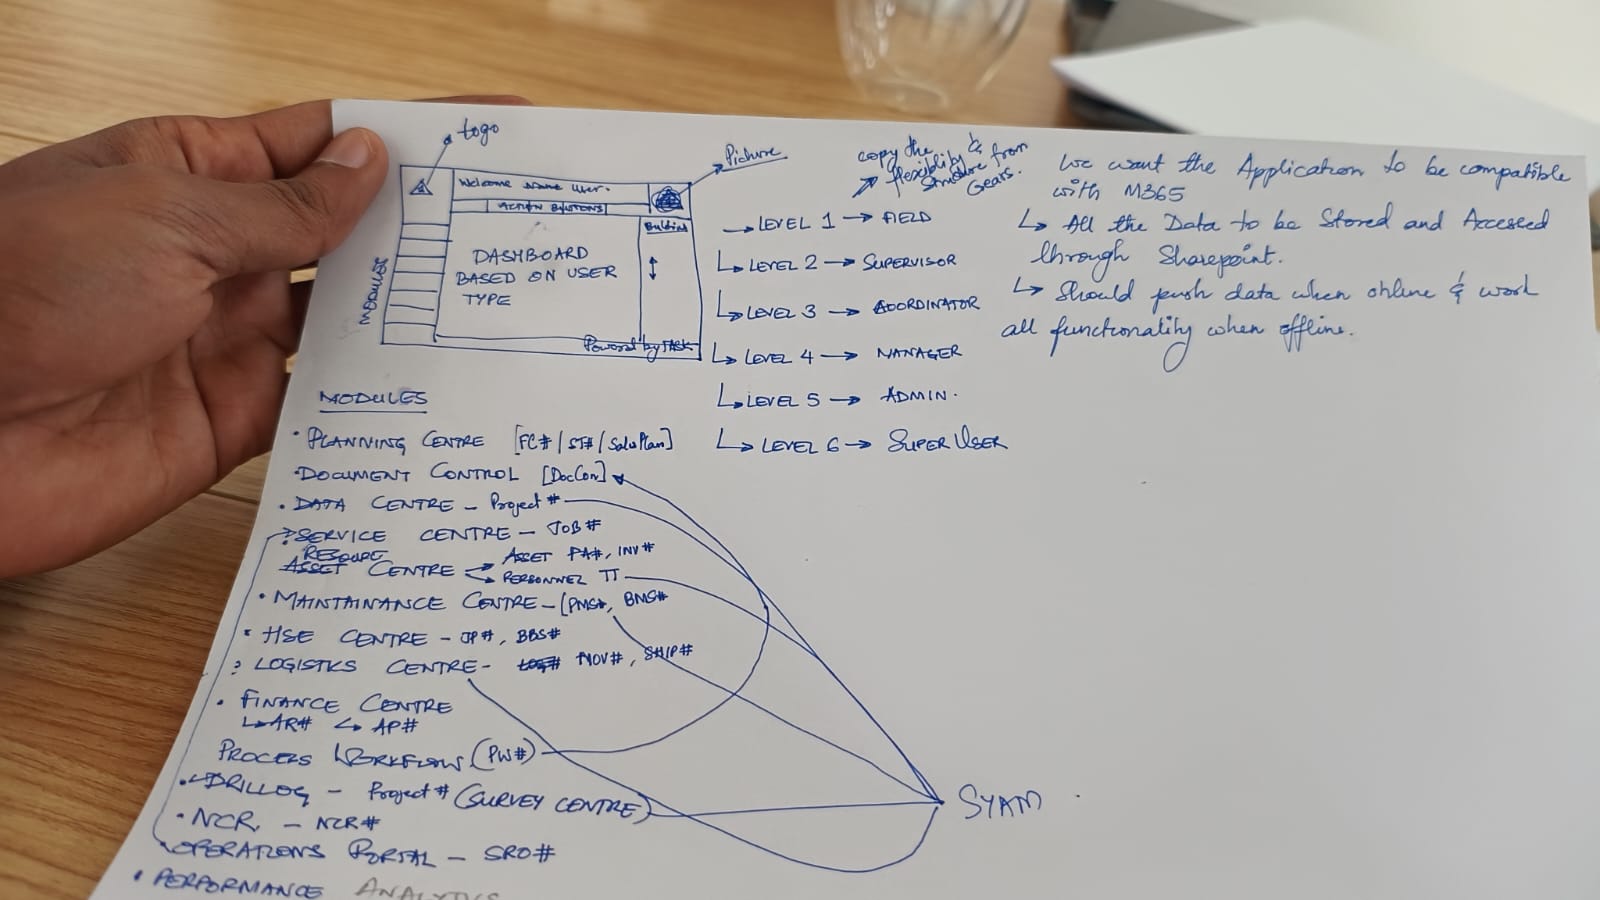 Logo
Picture
Welcome Name User.
ACTION BUTTONS
DASHBOARD
BASED ON USER
TYPE
MODULES
Powered by TASK
copy the
flexiblity &
structure from
Gears.
LEVEL 1 → FIELD
LEVEL 2 → SUPERVISOR
LEVEL 3 → COORDINATOR
LEVEL 4 → MANAGER
LEVEL 5 → ADMIN.
LEVEL 6 → SUPER USER
We want the Application to be compatible
with M365
↳ All the Data to be Stored and Accesed
through Sharepoint.
↳ Should push data when online & work
all functionality when offline.
MODULES
• PLANNING CENTRE [FC# / ST# / SalesPlan]
• DOCUMENT CONTROL [DocCon]
• DATA CENTRE – Project #
• SERVICE CENTRE – JOB #
RESOURCE
ASSET CENTRE → ASSET PA#, INV #
→ PERSONNEL TT
• MAINTAINANCE CENTRE – [PMS#, BMS#
• HSE CENTRE – JP#, BBS#
• LOGISTKS CENTRE – MOV#, SHIP#
• FINANCE CENTRE
↳ AR# ↳ AP#
PROCESS WORKFLOW (PW#)
• DRILLOG – Project # (SURVEY CENTRE)
• NCR. – NCR#
OPERATIONS PORTAL – SRO#
• PERFORMANCE ANALYTICS
SYAM